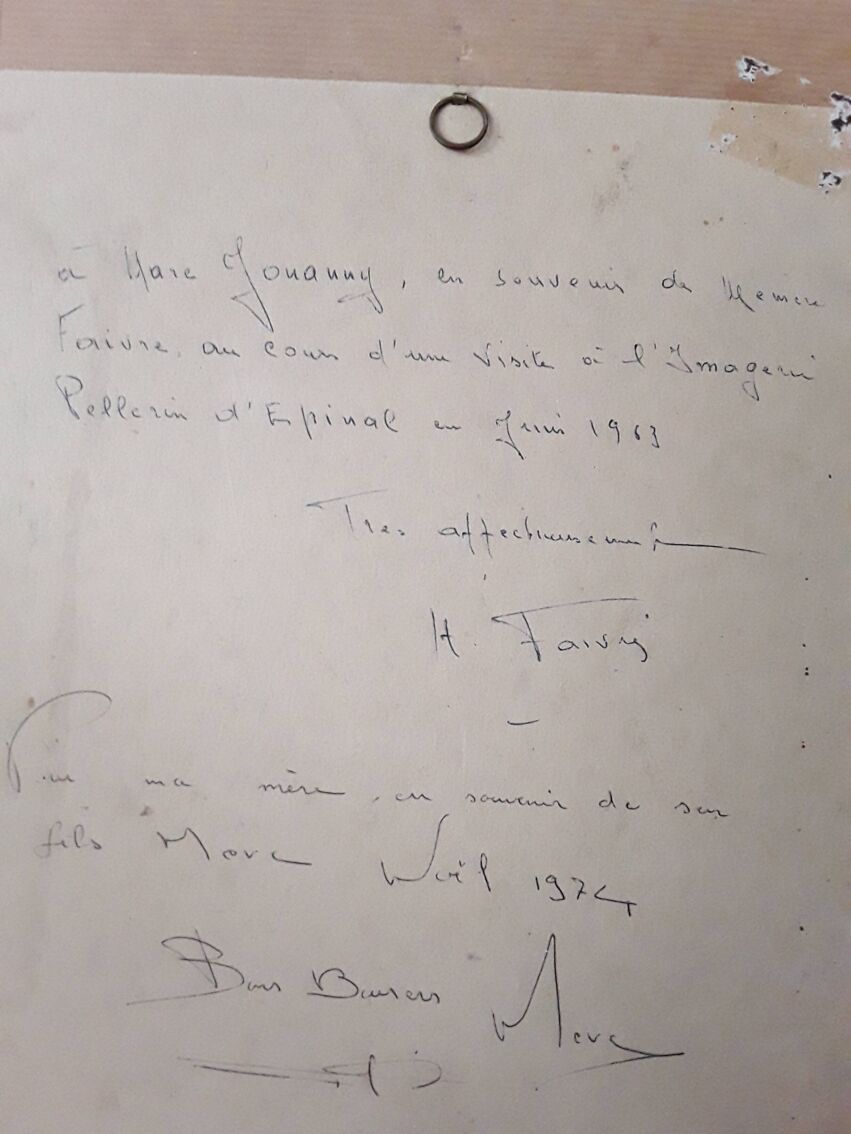 à Marc Jouanny, en souvenir de Memere
Faivre, au cours d'une visite à l'Imagerie
Pellerin d'Epinal en Juin 1963
Tres affectueusement
H. Faivre
Pour ma mère, en souvenir de son
fils Marc Noël 1974
Bons Baisers Marc